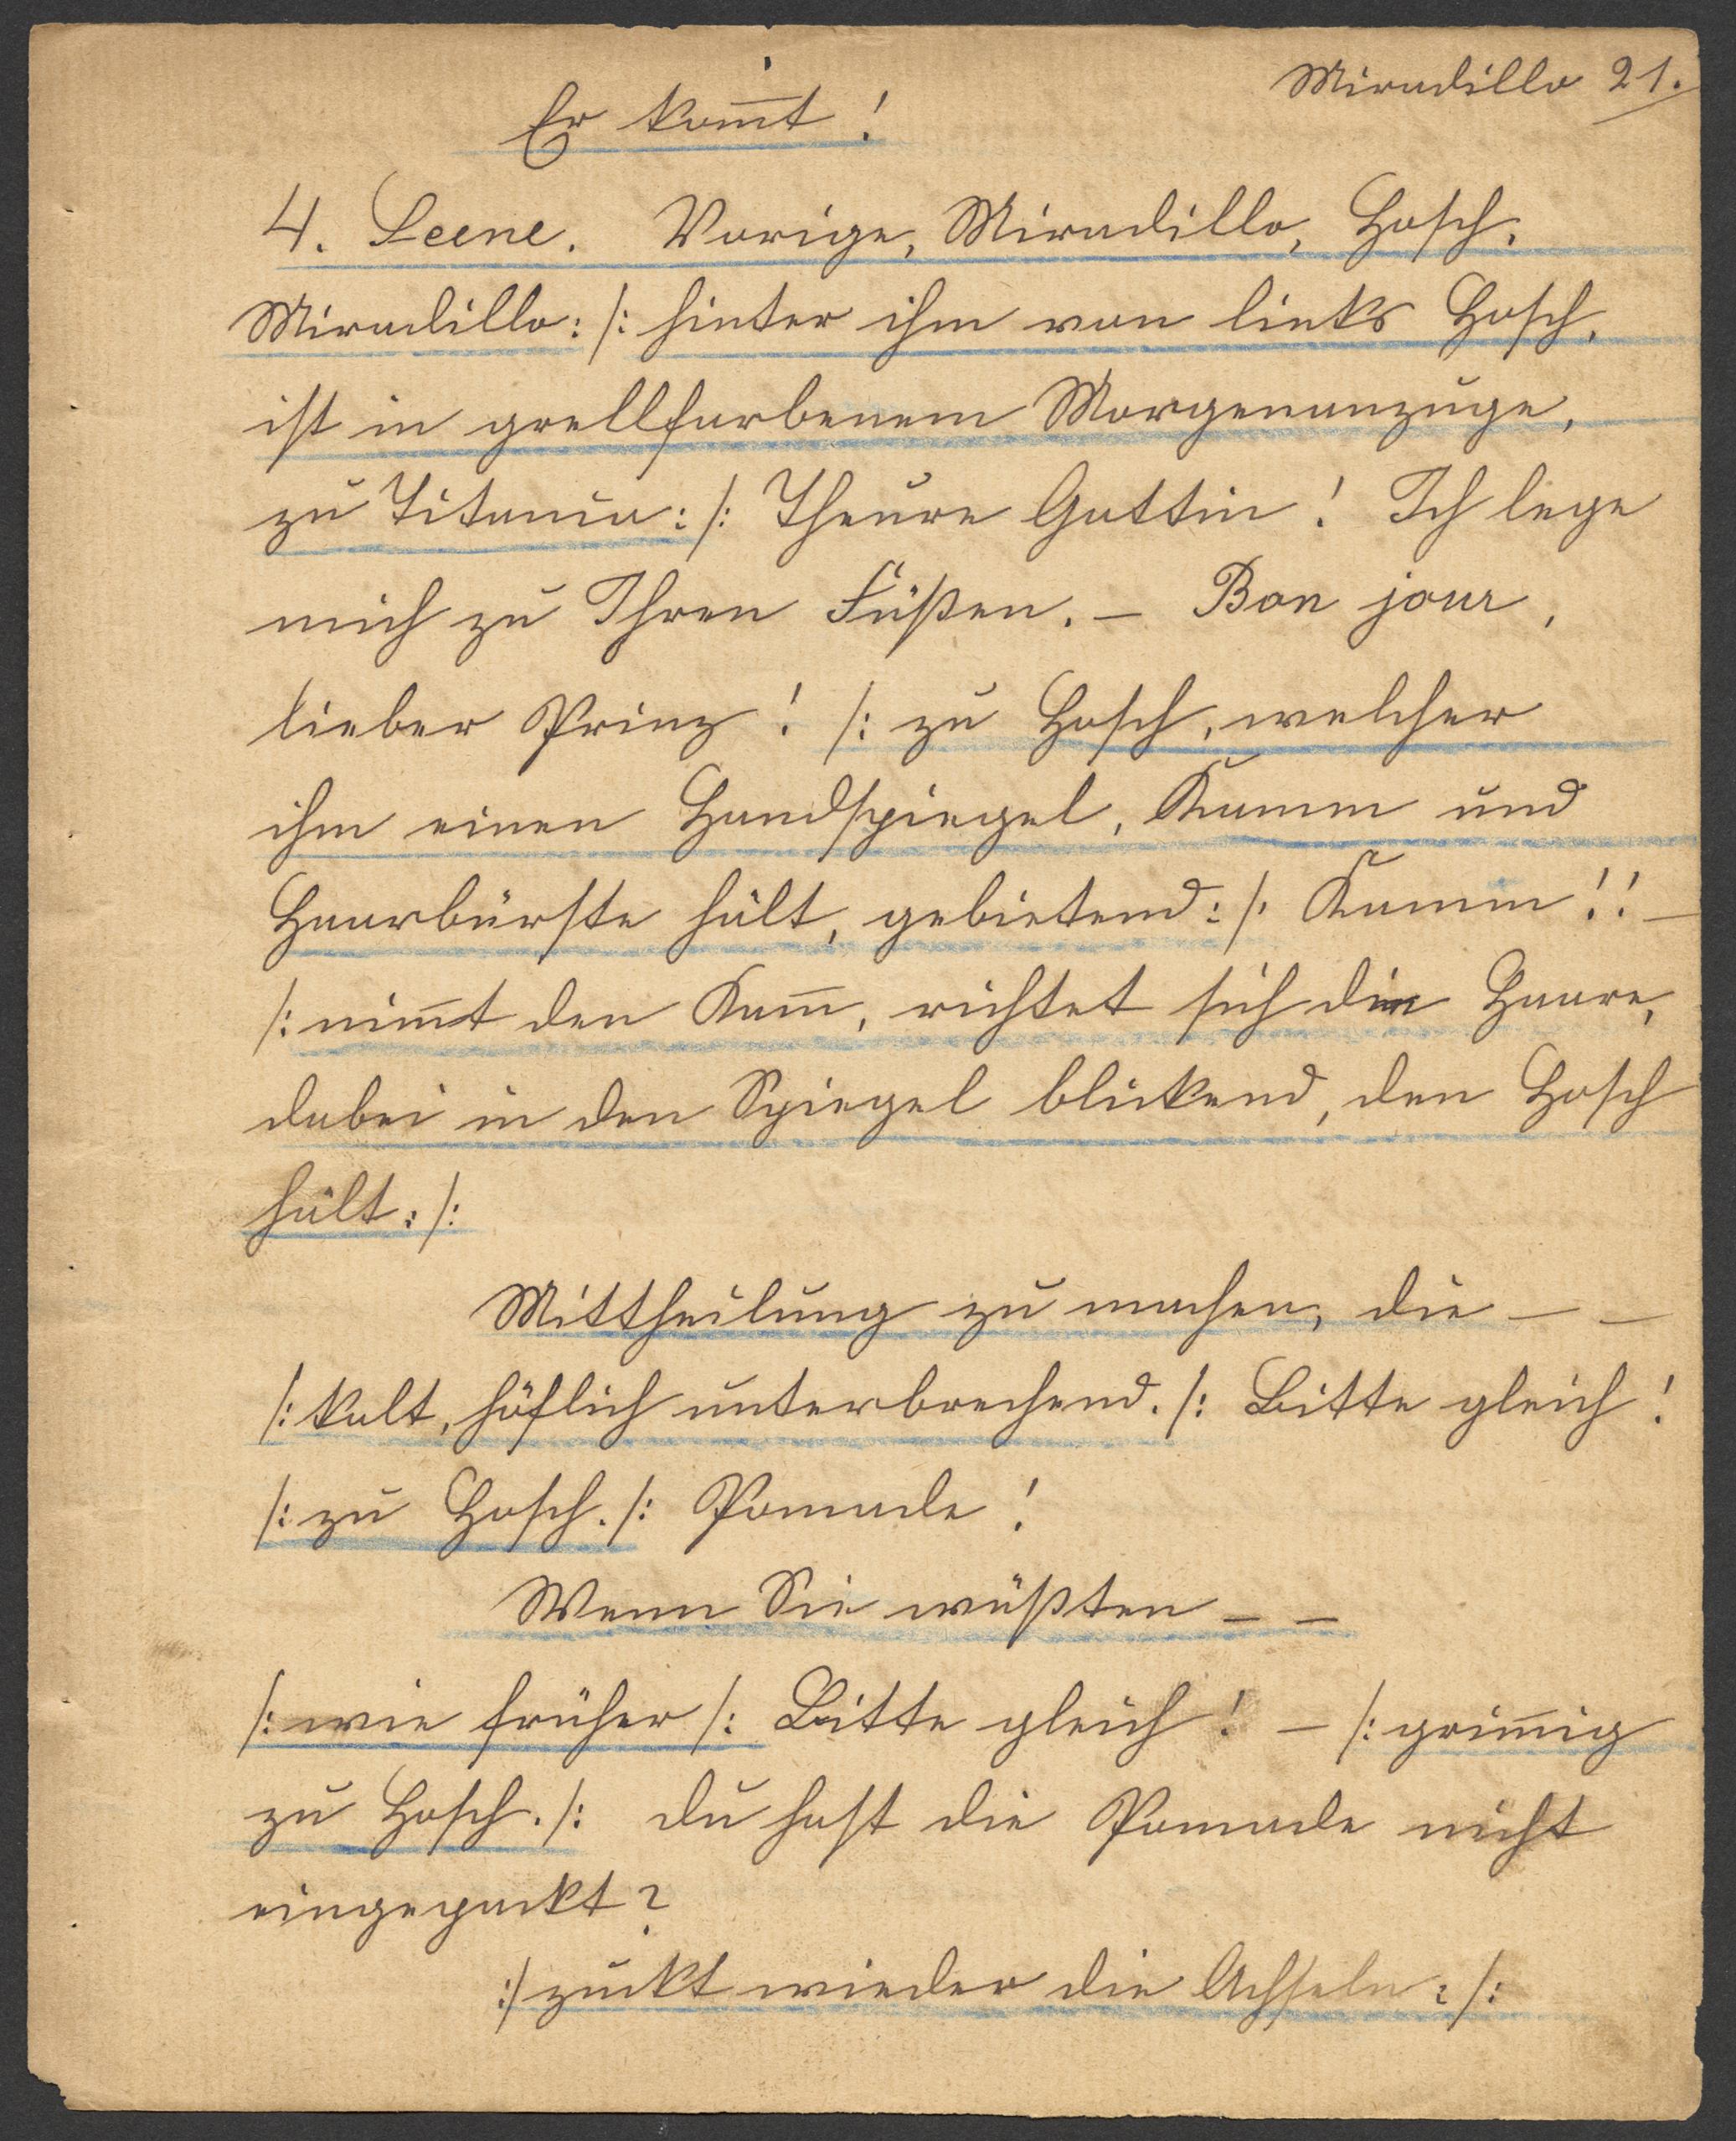 Miradillo 21.
Er kom̅t!
4. Scene. Vorige, Miradillo, Hosch.
Miradillo: /: hinter ihm von links Hosch,
ist in grellfarbenem Morgenanzuge,
zu Titania: /: Theure Gattin! Ich lege
mich zu Ihren Füßen. – Bon jour,
lieber Prinz! /: zu Hosch, welcher
ihm einen Handspiegel, Kamm und
Haarbürste hält, gebietend: /: Kamm!! –
/: nim̅t den Kam̅, richtet sich die Haare,
dabei in den Spiegel blickend, den Hosch
hält: /:
Mittheilung zu machen, die – –
/: kalt, höflich unterbrechend. /: Bitte gleich!
/: zu Hosch. /: Pomade!
Wenn Sie wüßten – –
/: wie früher /: Bitte gleich! – /: grim̅ig
zu Hosch. /: du hast die Pomade nicht
eingepackt?
:/ zuckt wieder die Achseln: /: